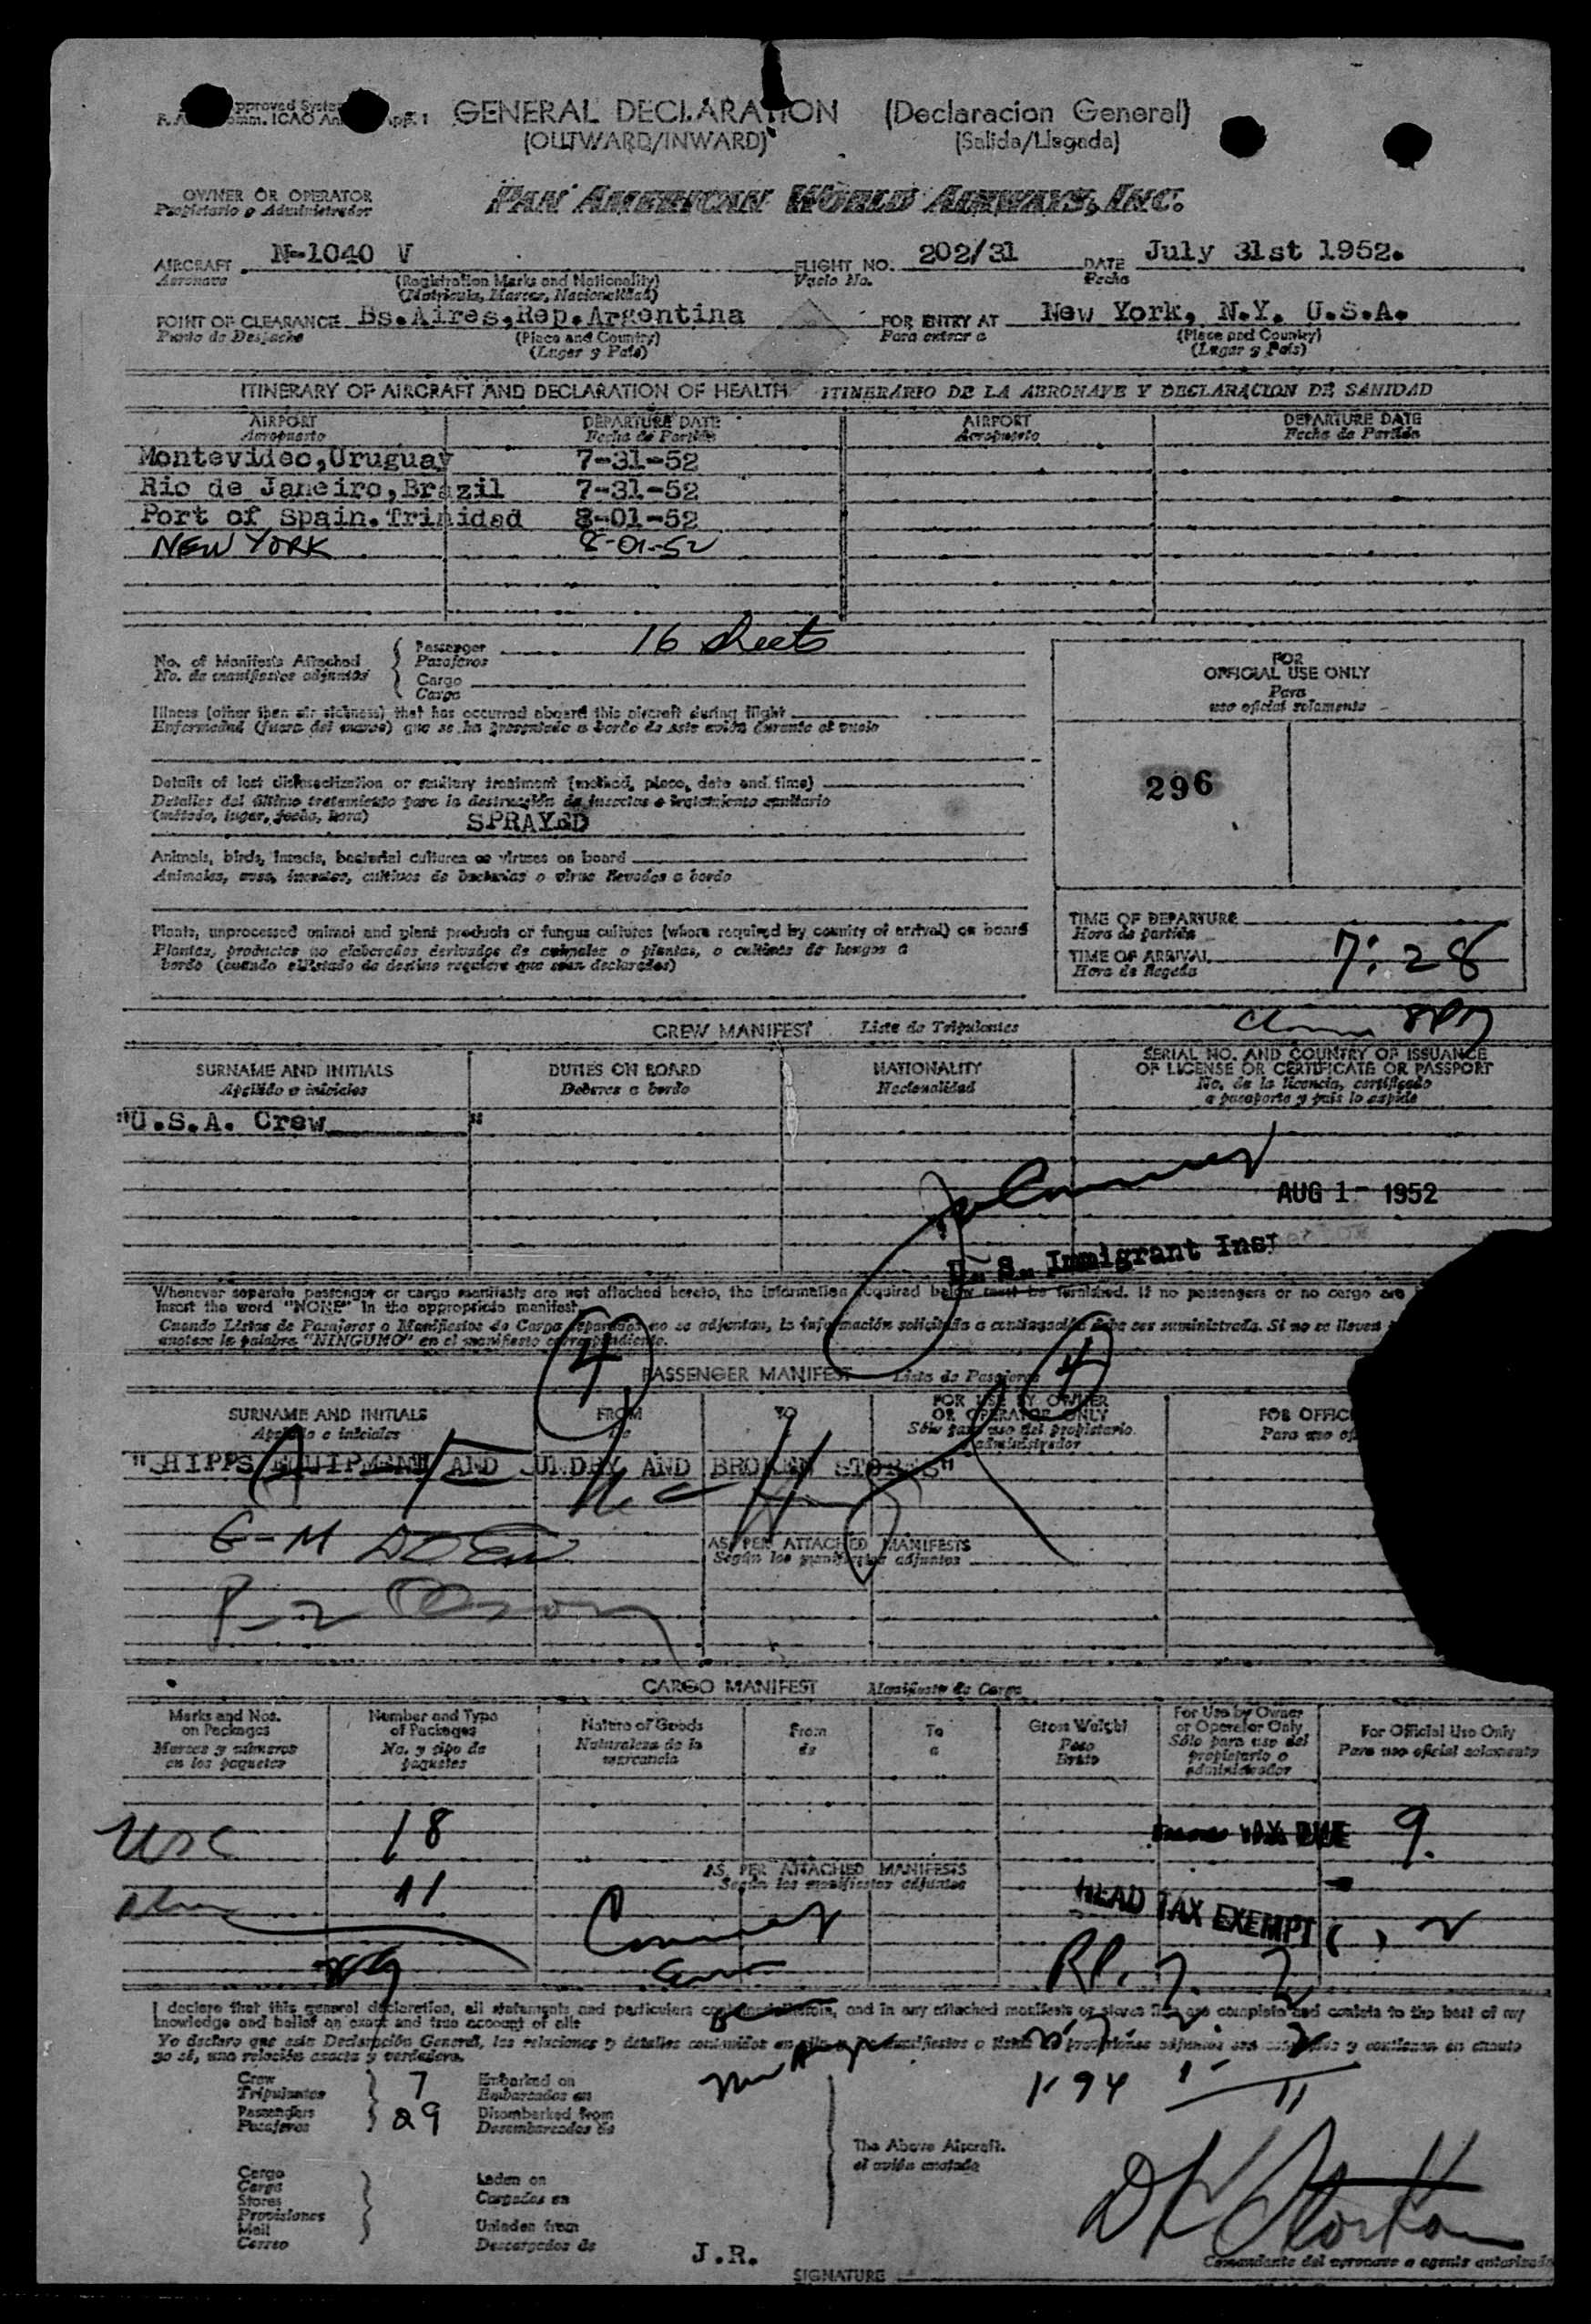 GENERAL DECLARATION (Declaracion General)
(OUTWARD/INWARD) (Salida/Llegada)
OWNER OR OPERATOR
Propietario o Administrador
PAN AMERICAN WORLD AIRWAYS, INC.
AIRCRAFT N-1040 V FLIGHT NO. 202/31 DATE July 31st 1952.
Aeronave (Registration Marks and Nationality) Vuelo No. Fecha
(Matricula, Marcas, Nacionalidad)
POINT OF CLEARANCE Bs.Aires,Rep.Argentina FOR ENTRY AT New York, N.Y. U.S.A.
Punto de Despacho (Place and Country) Para entrar a (Place and Country)
(Lugar y Pais) (Lugar y Pais)
ITINERARY OF AIRCRAFT AND DECLARATION OF HEALTH ITINERARIO DE LA AERONAVE Y DECLARACION DE SANIDAD
AIRPORT DEPARTURE DATE AIRPORT DEPARTURE DATE
Aeropuerto Fecha de Partida Aeropuerto Fecha de Partida
Montevideo,Uruguay 7-31-52
Rio de Janeiro,Brazil 7-31-52
Port of Spain.Trinidad 8-01-52
NEW YORK 8-01-52
No. of Manifests Attached Passenger 16 sheets
No. de manifiestos adjuntos Pasajeros
Cargo
Carga
FOR
OFFICIAL USE ONLY
Para
uso oficial solamente
Illness (other than air sickness) that has occurred aboard this aircraft during flight
Enfermedad (fuera del mareo) que se ha presentado a bordo de este avión durante el vuelo
296
Details of last disinsectization or sanitary treatment (method, place, date and time)
Detalles del último tratamiento para la destrucción de insectos o tratamiento sanitario
(método, lugar, fecha, hora) SPRAYED
Animals, birds, insects, bacterial cultures or viruses on board
Animales, aves, insectos, cultivos de bacterias o virus llevados a bordo
Plants, unprocessed animal and plant products or fungus cultures (where required by country of arrival) on board
Plantas, productos no elaborados derivados de animales o plantas, o cultivos de hongos a
bordo (cuando el Estado de destino requiere que sean declarados)
TIME OF DEPARTURE
Hora de partida
TIME OF ARRIVAL 7:28
Hora de llegada
8PM
CREW MANIFEST Lista de Tripulantes
SURNAME AND INITIALS DUTIES ON BOARD NATIONALITY SERIAL NO. AND COUNTRY OF ISSUANCE
OF LICENSE OR CERTIFICATE OR PASSPORT
Apellido e iniciales Deberes a bordo Nacionalidad No. de la licencia, certificado
o pasaporte y pais lo expide
"U.S.A. Crew "
AUG 1- 1952
U. S. Immigrant Insp
Whenever separate passenger or cargo manifests are not attached hereto, the information required below must be furnished. If no passengers or no cargo are
insert the word "NONE" in the appropriate manifest.
Cuando Listas de Pasajeros o Manifiestos de Carga separados no se adjuntan, la información solicitada a continuación debe ser suministrada. Si no se llevan
anotese la palabra "NINGUNO" en el manifiesto correspondiente.
4 4
PASSENGER MANIFEST Lista de Pasajeros
SURNAME AND INITIALS FROM TO FOR USE BY OWNER
OR OPERATOR ONLY FOR OFFIC
Apellido e iniciales de a Sólo para uso del propietario
o administrador Para uso of
"SHIPPS EQUIPMENT AND SUNDRY AND BROKEN STORES"
AS PER ATTACHED MANIFESTS
Según los manifiestos adjuntos
CARGO MANIFEST Manifiesto de Carga
Marks and Nos. on Packages Number and Type of Packages Nature of Goods From To Gross Weight For Use by Owner or Operator Only For Official Use Only
Marcas y números en los paquetes No. y tipo de paquetes Naturaleza de la mercancia de a Peso Bruto Sólo para uso del propietario o administrador Para uso oficial solamente
USC 18 TAX DUE 9.
AS PER ATTACHED MANIFESTS
Según los manifiestos adjuntos
11
HEAD TAX EXEMPT ( )
I declare that this general declaration, all statements and particulars contained therein, and in any attached manifests or stores lists are complete and contain to the best of my
knowledge and belief an exact and true account of all:
Yo declaro que esta Declaración General, las relaciones y detalles contenidos en ella y los manifiestos o listas de provisiones adjuntos son completos y contienen en cuanto
yo sé, una relación exacta y verdadera.
Crew 7 Embarked on
Tripulantes Embarcados en
Passengers 29 Disembarked from
Pasajeros Desembarcados de
I-94 11
The Above Aircraft.
el avión anotado
Cargo
Carga
Stores
Provisiones
Mail
Correo
Laden on
Cargados en
Unladen from
Descargados de
J.R.
SIGNATURE
Comandante del aeronave o agente autorizado